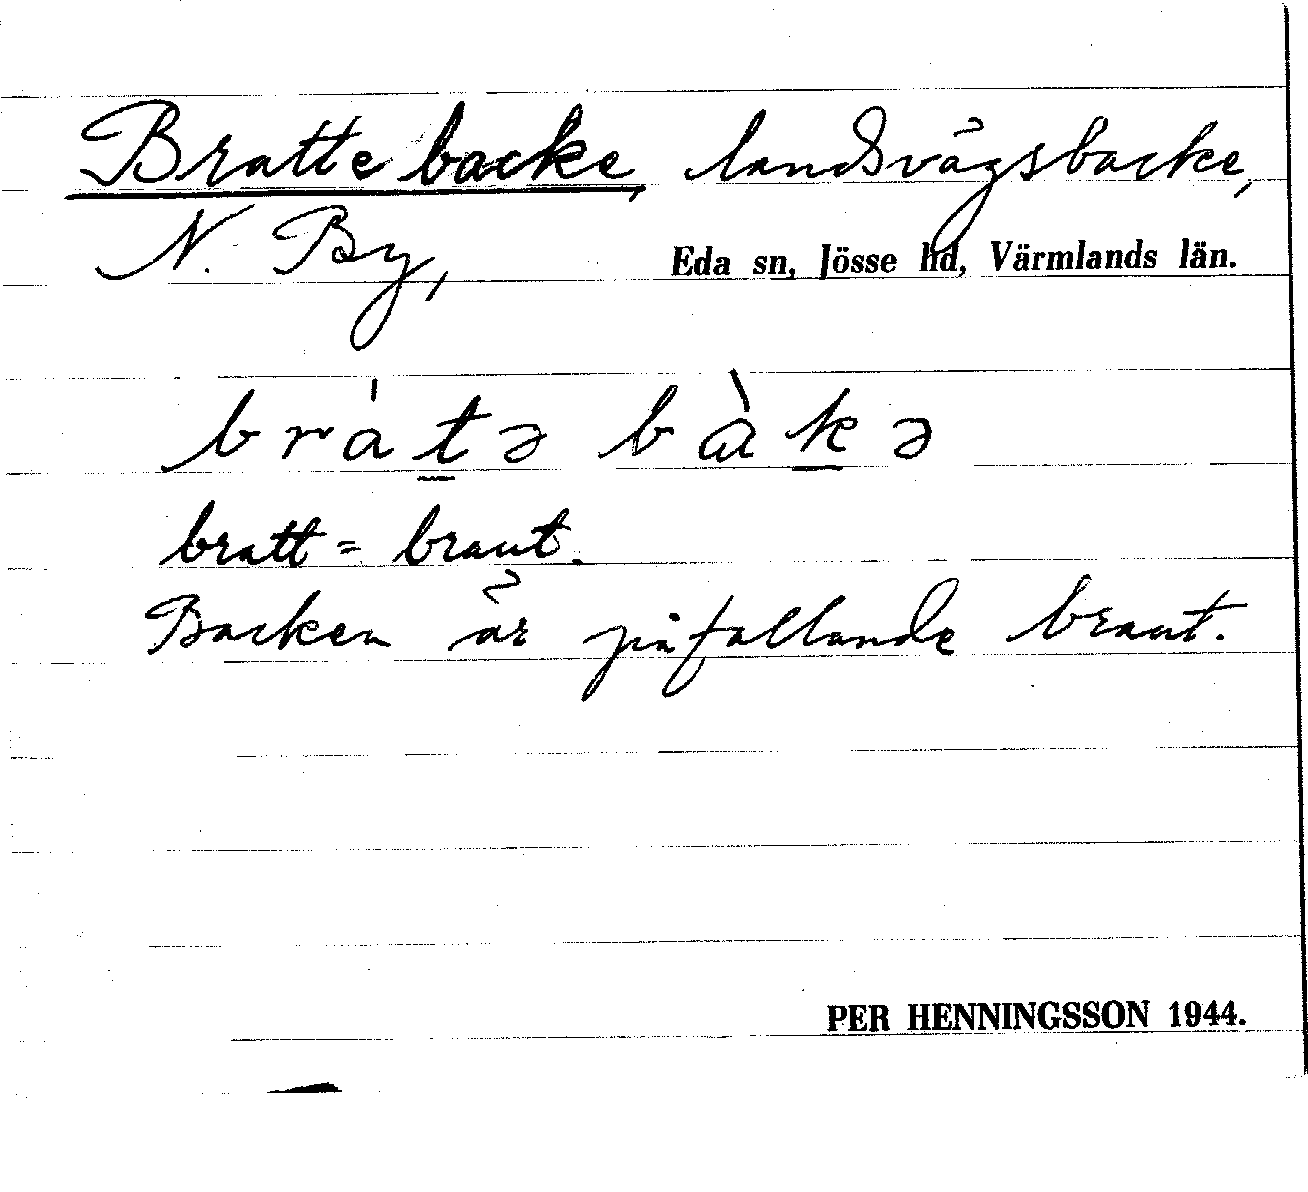 Brattebacke, landsvägsbacke,
N. By, Eda sn, Jösse hd, Värmlands län.
bràt̲ə bàk̲ə
bratt = braut.
Backen är påfallande braut.
PER HENNINGSSON 1944.